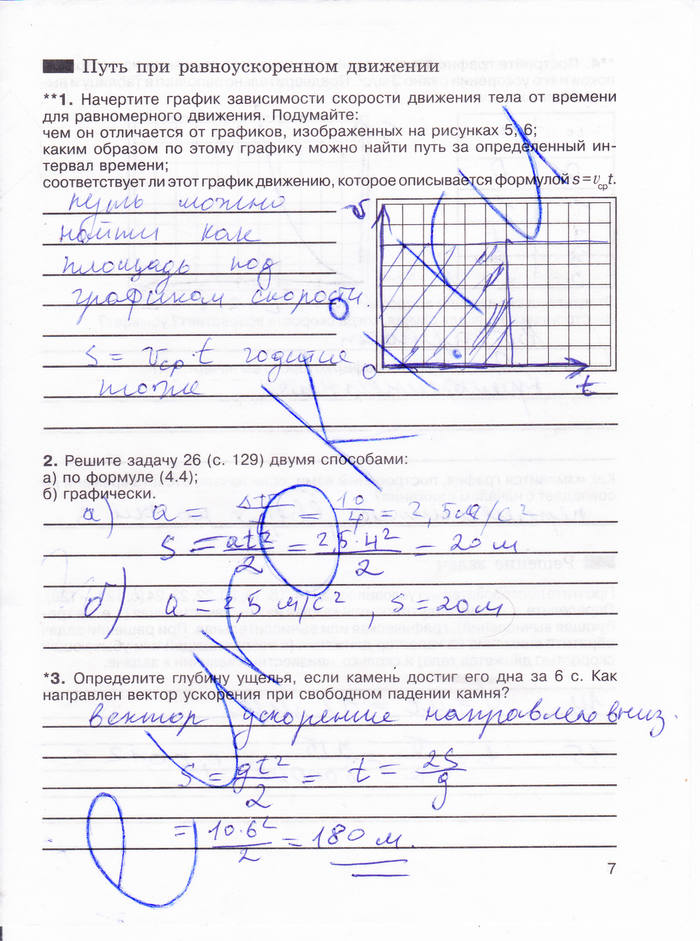 Путь при равноускоренном движении
**1. Начертите график зависимости скорости движения тела от времени
для равномерного движения. Подумайте:
чем он отличается от графиков, изображенных на рисунках 5, 6;
каким образом по этому графику можно найти путь за определенный ин-
тервал времени;
соответствует ли этот график движению, которое описывается формулой s = vсрt.
путь можно
найти как
площадь под
графиком скорости.
S = vср · t годится
тоже
v
0
t
2. Решите задачу 26 (с. 129) двумя способами:
а) по формуле (4.4);
б) графически.
а) a = = 10/4 = 2,5 м/с²
S = at²/2 = 2,5·4²/2 = 20 м.
б) a = 2,5 м/с², S = 20 м
*3. Определите глубину ущелья, если камень достиг его дна за 6 с. Как
направлен вектор ускорения при свободном падении камня?
вектор ускорение направлено вниз.
S = gt²/2 = t = 2S/g
= 10·6²/2 = 180 м.
7